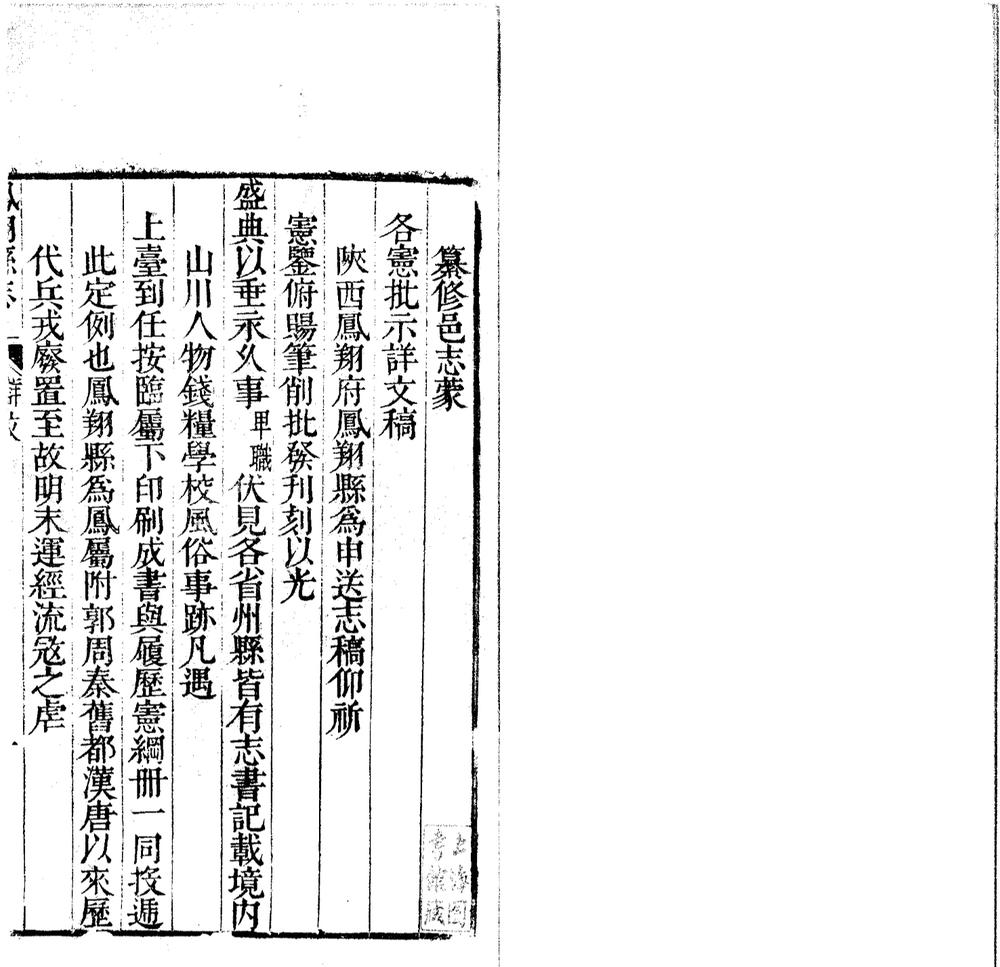 纂修邑志蒙
各憲批示詳文稿
陝西鳳翔府鳳翔縣爲申送志稿仰祈
憲鑒俯賜筆削批發刋刻以光
盛典以垂永乆事卑職伏見各省州縣皆有志書記載境內
山川人物錢糧學校風俗事跡凡遇
上臺到任按臨屬下印刷成書與履歷憲綱冊一同投遞
此定例也鳳翔縣爲鳳屬附郭周秦舊都漢唐以來歷
代兵戎廢置至故明末運經流寇之虐
上海圖書館藏